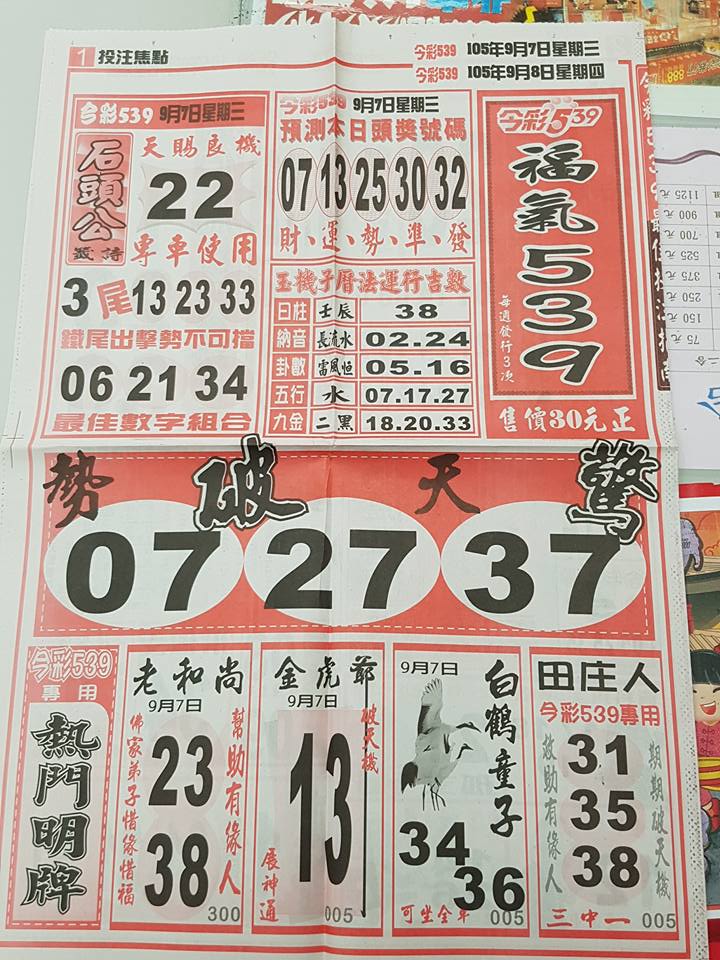 1 投注焦點
今彩539 105年9月7日星期三
今彩539 105年9月8日星期四
今彩539 9月7日星期三
石頭公
籤詩
天賜良機
22
專車使用
3尾 13 23 33
鐵尾出擊勢不可擋
06 21 34
最佳數字組合
今彩539 9月7日星期三
預測本日頭獎號碼
07 13 25 30 32
財、運、勢、準、發
玉機子曆法運行吉數
日柱 壬辰 38
納音 長流水 02.24
卦數 雷風恒 05.16
五行 水 07.17.27
九金 二黑 18.20.33
今彩539
福氣539
每週發行3次
售價30元正
勢破天驚
07 27 37
今彩539
專用
熱門明牌
老和尚
9月7日
佛家弟子惜緣惜福
23
38
幫助有緣人
300
金虎爺
9月7日
破天機
13
展神通
005
9月7日
白鶴童子
34
36
可坐全車
005
田庄人
今彩539專用
救助有緣人
31
35
38
期期破天機
三中一
005
1125 元
900 元
700 元
525 元
375 元
250 元
150 元
75 元